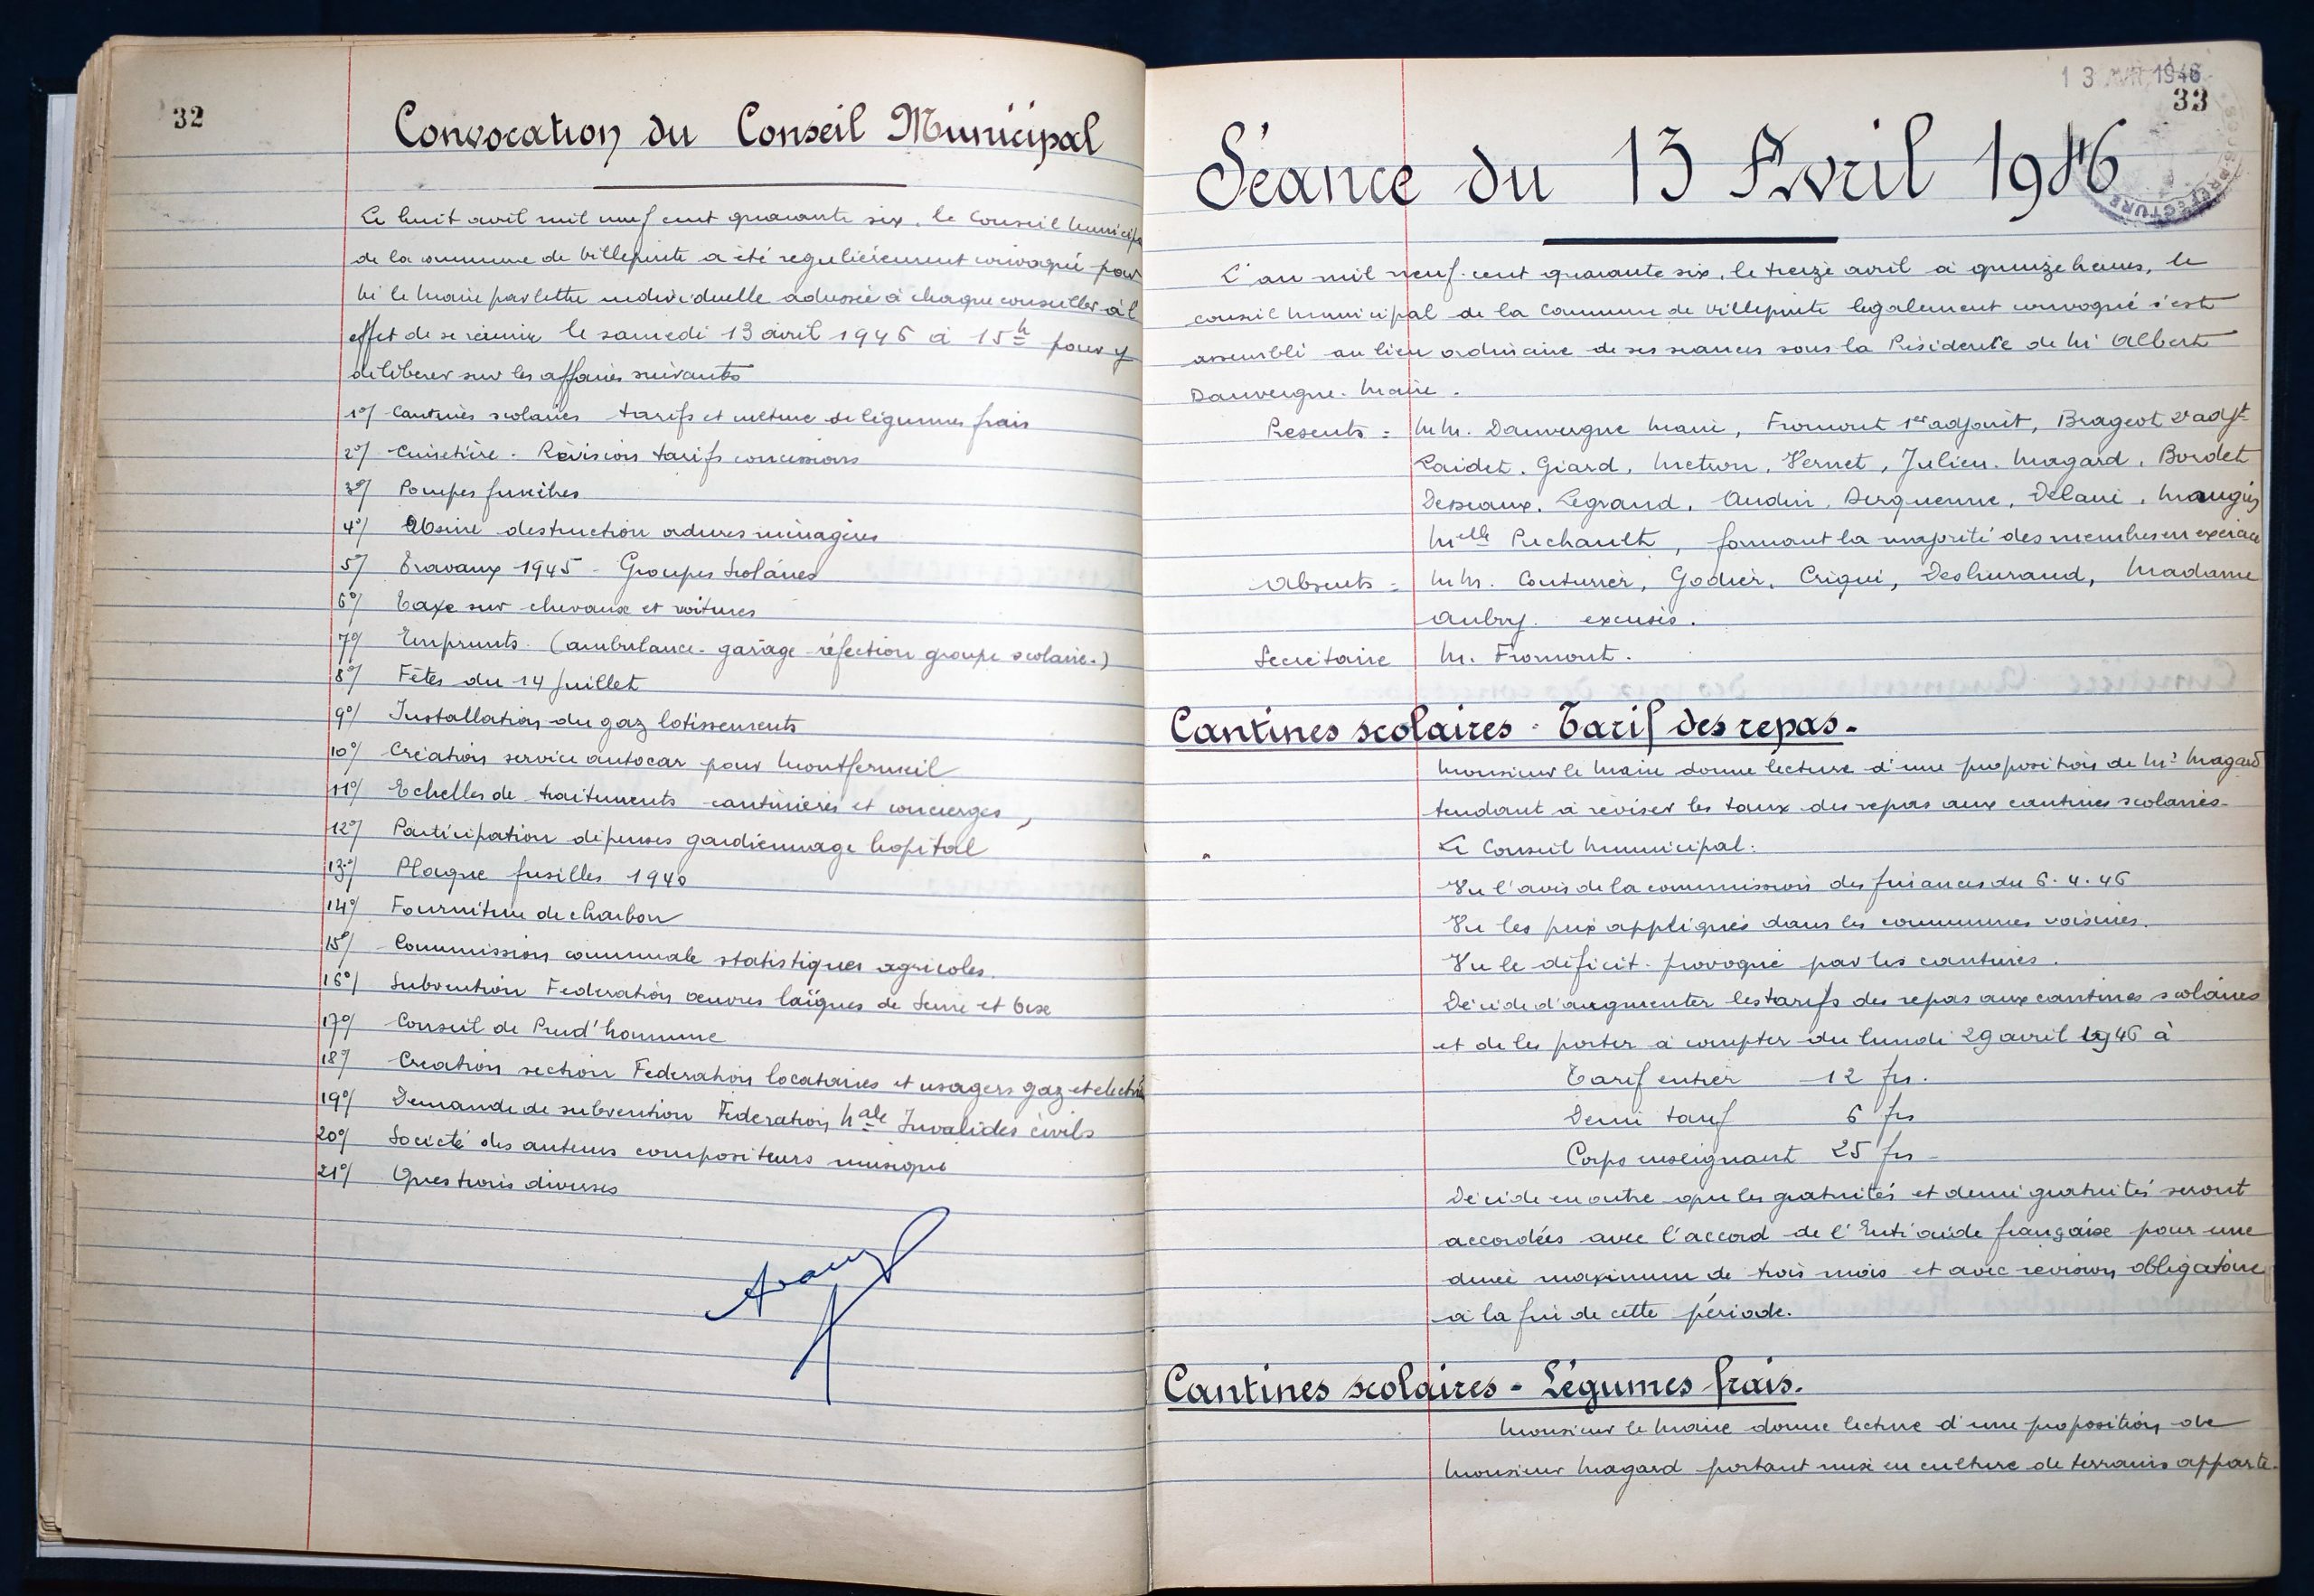 32
Convocation du Conseil Municipal
Le huit avril mil neuf cent quarante six, le Conseil Municip
de la commune de Villepinte a été regulièrement convoqué par
Mr le Maire par lettre individuelle adressée à chaque conseiller à l
effet de se réunir le samedi 13 avril 1946 à 15h pour y
délibérer sur les affaires suivantes
1°/ Cantines scolaires tarifs et culture de légumes frais
2°/ Cimetière - Révision tarifs concessions
3°/ Pompes funèbres
4°/ Usine destruction ordures ménagères
5°/ Travaux 1945 - Groupes Scolaires
6°/ Taxe sur chevaux et voitures
7°/ Emprunts. (ambulance - garage - réfection groupe scolaire.)
8°/ Fêtes du 14 Juillet
9°/ Installation du gaz lotissements
10°/ Création service autocar pour Montfermeil
11°/ Echelles de traitements cantinières et concierges,
12°/ Participation dépenses gardiennage hopital
13°/ Plaque fusillés 1940
14°/ Fourniture de charbon
15°/ Commission communale statistiques agricoles.
16°/ Subvention Federation œuvres laïques de Seine et Oise
17°/ Conseil de Prud'homme
18°/ Creation section Federation locataires et usagers gaz et electri
19°/ Demande de subvention Fédération Nale Invalides civils
20°/ Société des auteurs compositeurs musique
21°/ Questions diverses
13 AVR 1946
33
SOUS-PREFECTURE
Séance du 13 Avril 1946
L'an mil neuf-cent quarante six, le treize avril à quinze heures, le
conseil Municipal de la Commune de Villepinte légalement convoqué s'est
assemblé au lieu ordinaire de ses séances sous la Présidence de Mr Albert
Dauvergne. Maire.
Présents = MM. Dauvergne Maire, Fromont 1er adjoint, Brageot 2e adjt
Laidet, Giard, Metron, Vernet, Julien, Magard, Bordet
Desseaux, Legrand, Audin, Derquenne, Delani, Maugin
Melle Pichault, formant la majorité des membres en exercice
Absents = MM. Couturier, Godier, Criqui, Deslurand, Madame
Aubry. excusés.
Secrétaire M. Fromont.
Cantines scolaires - Tarif des repas.
Monsieur le Maire donne lecture d'une proposition de Mr Magard
tendant à réviser les taux des repas aux cantines scolaires.
Le Conseil Municipal:
Vu l'avis de la commission des finances du 6.4.46
Vu les prix appliqués dans les communes voisines.
Vu le déficit provoqué par les cantines.
Décide d'augmenter les tarifs des repas aux cantines scolaires
et de les porter à compter du lundi 29 avril 1946 à
Tarif entier 12 frs.
Demi tarif 6 frs
Corps enseignant 25 frs
Décide en outre que les gratuités et demi gratuités seront
accordées avec l'accord de l'Entr'aide française pour une
durée maximum de trois mois et avec révision obligatoire
à la fin de cette période.
Cantines scolaires - Légumes frais.
Monsieur le Maire donne lecture d'une proposition de
Monsieur Magard portant mise en culture de terrains apparte-